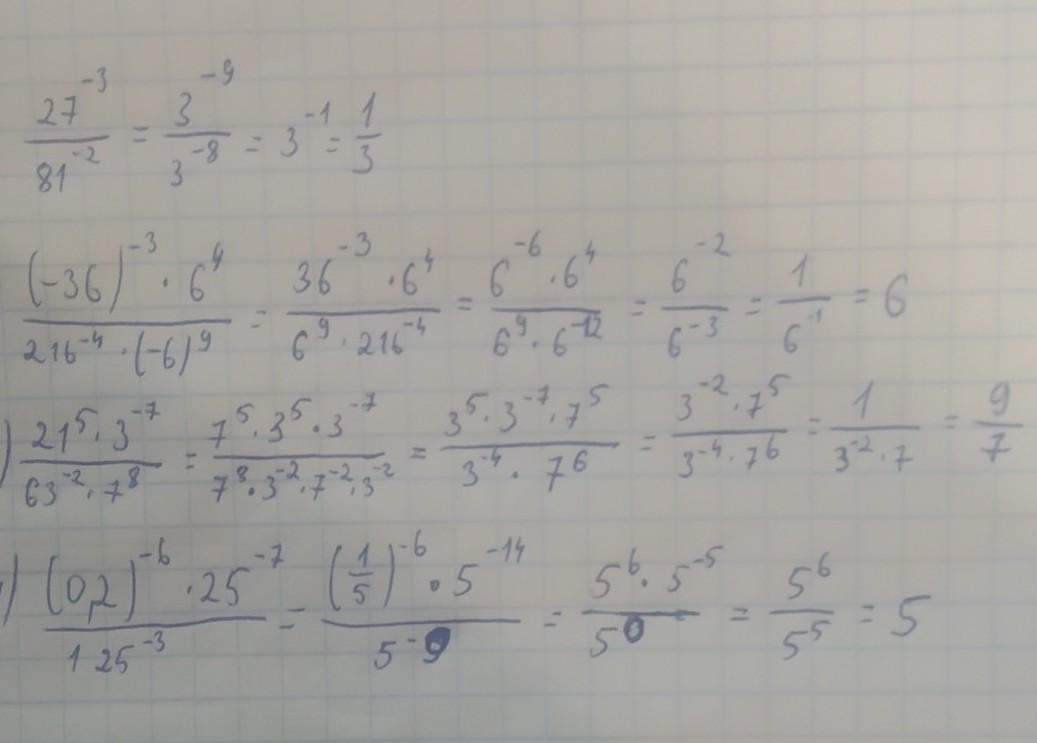 27^-3 / 81^-2 = 3^-9 / 3^-8 = 3^-1 = 1/3
(-36)^-3 · 6^4 / 216^-4 · (-6)^9 = 36^-3 · 6^4 / 6^9 · 216^-4 = 6^-6 · 6^4 / 6^9 · 6^-12 = 6^-2 / 6^-3 = 1 / 6^-1 = 6
) 21^5 · 3^-7 / 63^-2 · 7^8 = 7^5 · 3^5 · 3^-7 / 7^8 · 3^-2 · 7^-2 · 3^-2 = 3^5 · 3^-7 · 7^5 / 3^-4 · 7^6 = 3^-2 · 7^5 / 3^-4 · 7^6 = 1 / 3^-2 · 7 = 9/7
) (0,2)^-6 · 25^-7 / 125^-3 = (1/5)^-6 · 5^-14 / 5^-9 = 5^6 · 5^-5 / 5^0 = 5^6 / 5^5 = 5